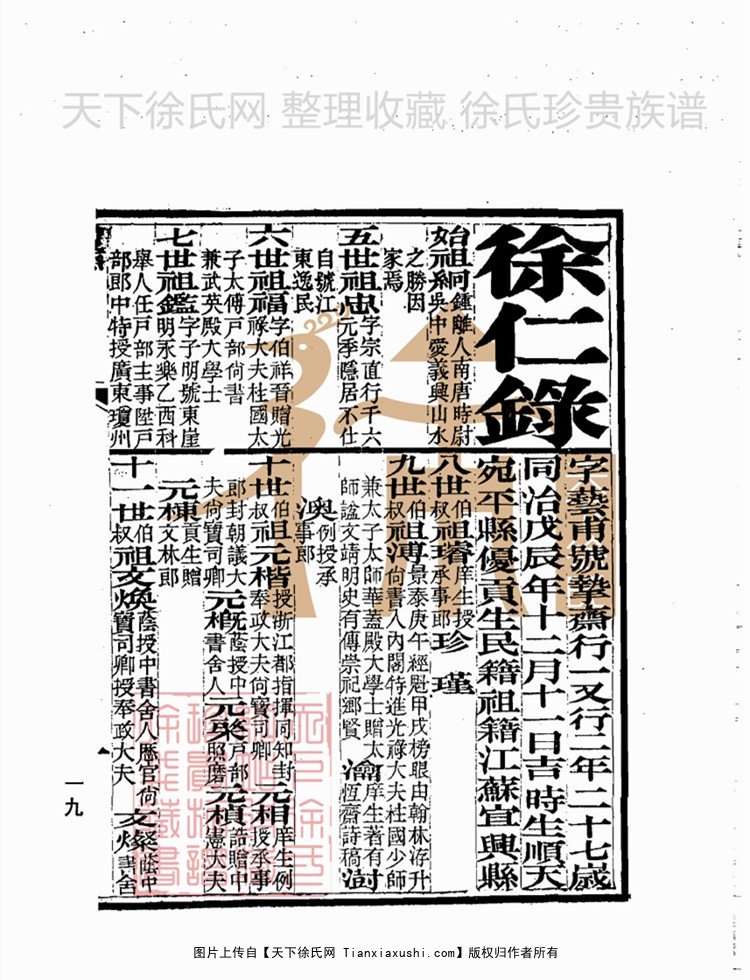 天下徐氏网 整理收藏 徐氏珍贵族谱
徐仁錄
字藝甫號摯齋行一又行二年二十七歲
同治戊辰年十二月十一日吉時生順天
宛平縣優貢生民籍祖籍江蘇宜興縣
始祖綱鍾離人南唐時尉
吳中愛義興山水
之勝因
家焉
五世祖忠字宗直行千六
元季隱居不仕
自號江
東逸民
六世祖福字伯祥晉贈光
祿大夫柱國太
子太傅戶部尚書
兼武英殿大學士
七世祖鑑字子明號東崖
明永樂乙酉科
舉人任戶部主事陞戶
部郎中特授廣東瓊州
八世伯叔祖璿庠生授
承事郎珍 瑾
九世伯叔祖溥景泰庚午經魁甲戌榜眼由翰林洊升
尚書入內閣特進光祿大夫柱國少師
兼太子太師華蓋殿大學士贈太
師諡文靖明史有傳崇祀鄉賢
瀹庠生著有
恆齋詩稿澍
澳例授承
事郎
十世伯叔祖元楷授浙江都指揮同知封
奉政大夫尚寶司卿
元相庠生例
授承事
郎封朝議大
夫尚寶司卿
元概蔭授中
書舍人
元㮣戶部
照磨
元楨誥贈中
憲大夫
元棟貢生贈
文林郎
十一世伯叔祖文煥蔭授中書舍人歷官尚
寶司卿授奉政大夫
文燦蔭中
書舍
一九
图片上传自【天下徐氏网 Tianxiaxushi.com】版权归作者所有